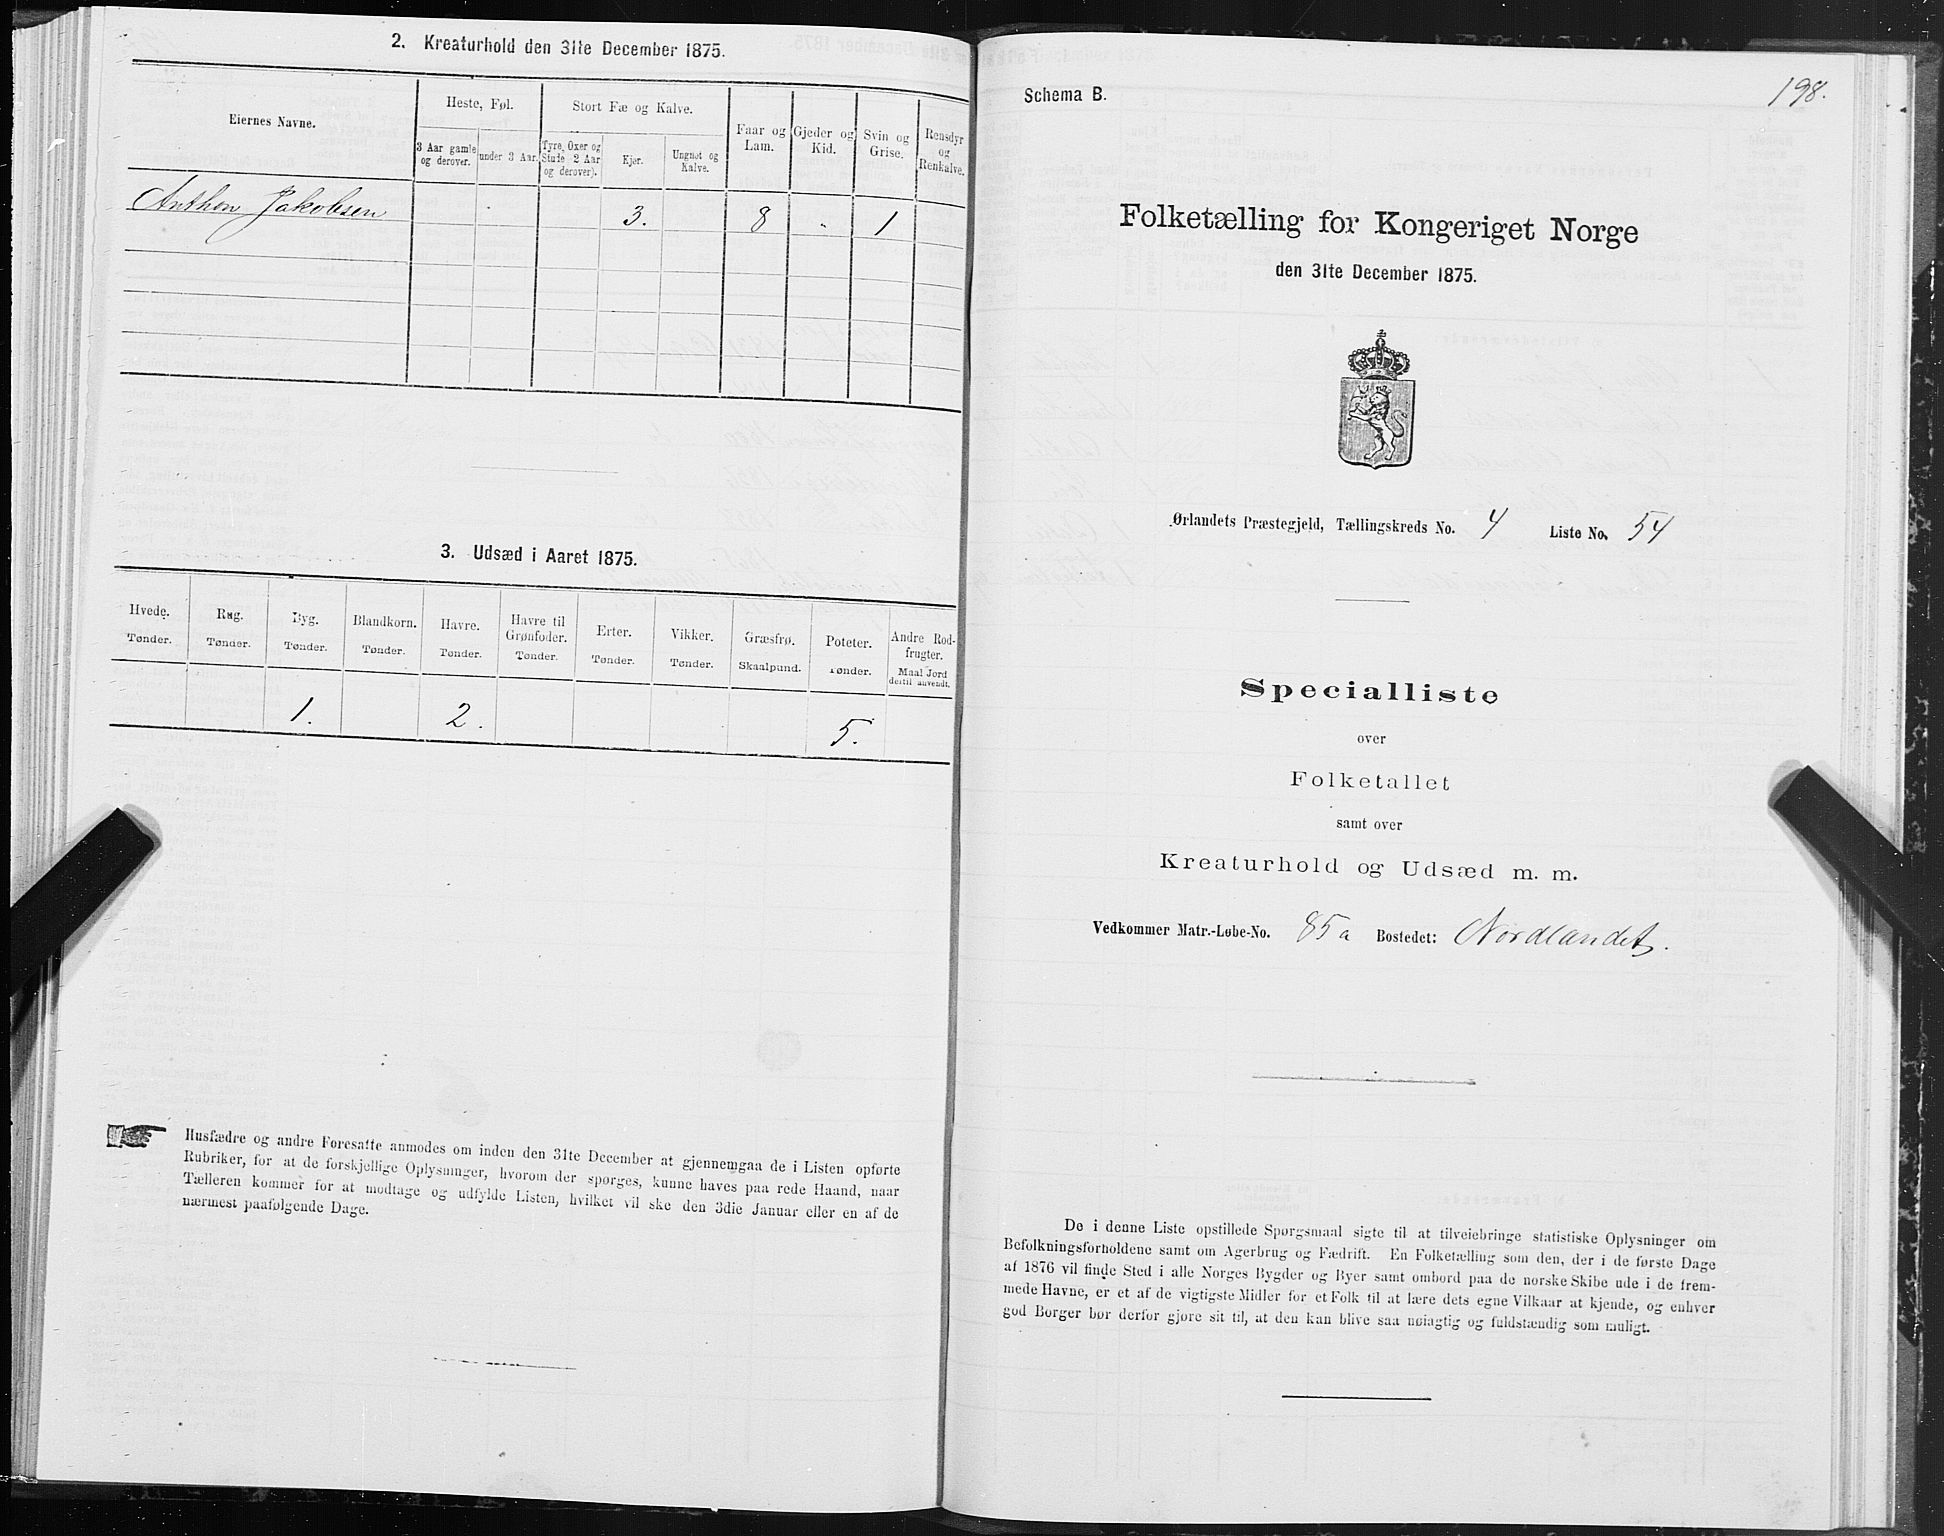 2. Kreaturhold den 31te December 1875.
Eiernes Navne.
Heste, Føl.
Stort Fæ og Kalve.
Faar og Lam.
Gjeder og Kid.
Svin og Grise.
Rensdyr og Renkalve.
3 Aar gamle og derover.
under 3 Aar.
Tyre, Oxer og Stude 2 Aar og derover).
Kjer.
Ungnøt og Kalve.
Anthon Jakobsen 3. 8 „ 1
3. Udsæd i Aaret 1875.
Hvede. Rug. Byg. Blandkorn. Havre. Havre til Grønfoder. Erter. Vikker. Græsfrø. Poteter. Andre Rodfrugter.
Tønder. Tønder. Tønder. Tønder. Tønder. Tønder. Tønder. Tønder. Skaalpund. Tønder. Maal Jord dertil anvendt.
1. 2. 5.
Husfædre og andre Foresatte anmodes om inden den 31te December at gjennemgaa de i Listen opførte
Rubriker, for at de forskjellige Oplysninger, hvorom der spørges, kunne haves paa rede Haand, naar
Tælleren kommer for at modtage og udfylde Listen, hvilket vil ske den 3die Januar eller en af de
nærmest paafølgende Dage.
198.
Schema B.
Folketælling for Kongeriget Norge
den 31te December 1875.
Ørlandets Præstegjeld, Tællingskreds No. 4 Liste No. 54
Specialliste
over
Folketallet
samt over
Kreaturhold og Udsæd m. m.
Vedkommer Matr.-Løbe-No. 85a Bostedet: Nordlandet.
De i denne Liste opstillede Spørgsmaal sigte til at tilveiebringe statistiske Oplysninger om
Befolkningsforholdene samt om Agerbrug og Fædrift. En Folketælling som den, der i de første Dage
af 1876 vil finde Sted i alle Norges Bygder og Byer samt ombord paa de norske Skibe ude i de frem-
mede Havne, er et af de vigtigste Midler for et Folk til at lære dets egne Vilkaar at kjende, og enhver
god Borger bør derfor gjøre sit til, at den kan blive saa nøiagtig og fuldstændig som muligt.